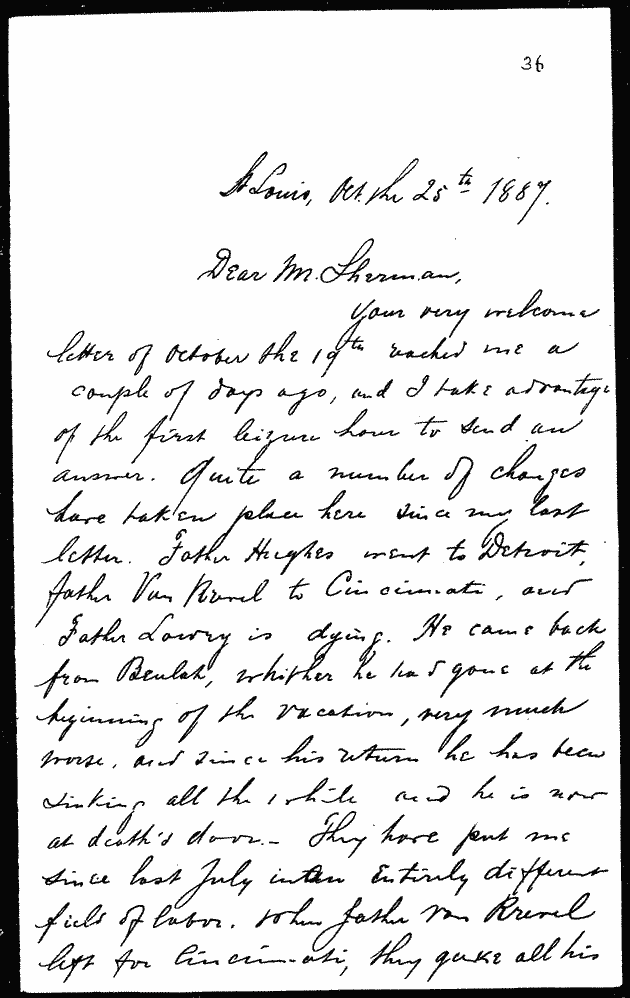 36
St Louis, Oct. the 25th 1887.
Dear Mr. Sherman,
Your very welcome
letter of October the 19th reached me a
couple of days ago, and I take advantage
of the first leizure hour to send an
answer. Quite a number of changes
have taken place here since my last
letter. Father Hughes went to Detroit,
father Van Krevel to Cincinnati, and
Father Lowry is dying. He came back
from Beulah, whither he had gone at the
beginning of the vacation, very much
worse, and since his return he has been
sinking all the while and he is now
at death's door. - They have put me
since last July into an Entirely different
field of labor. When father Van Krevel
left for Cincinnati, they gave all his